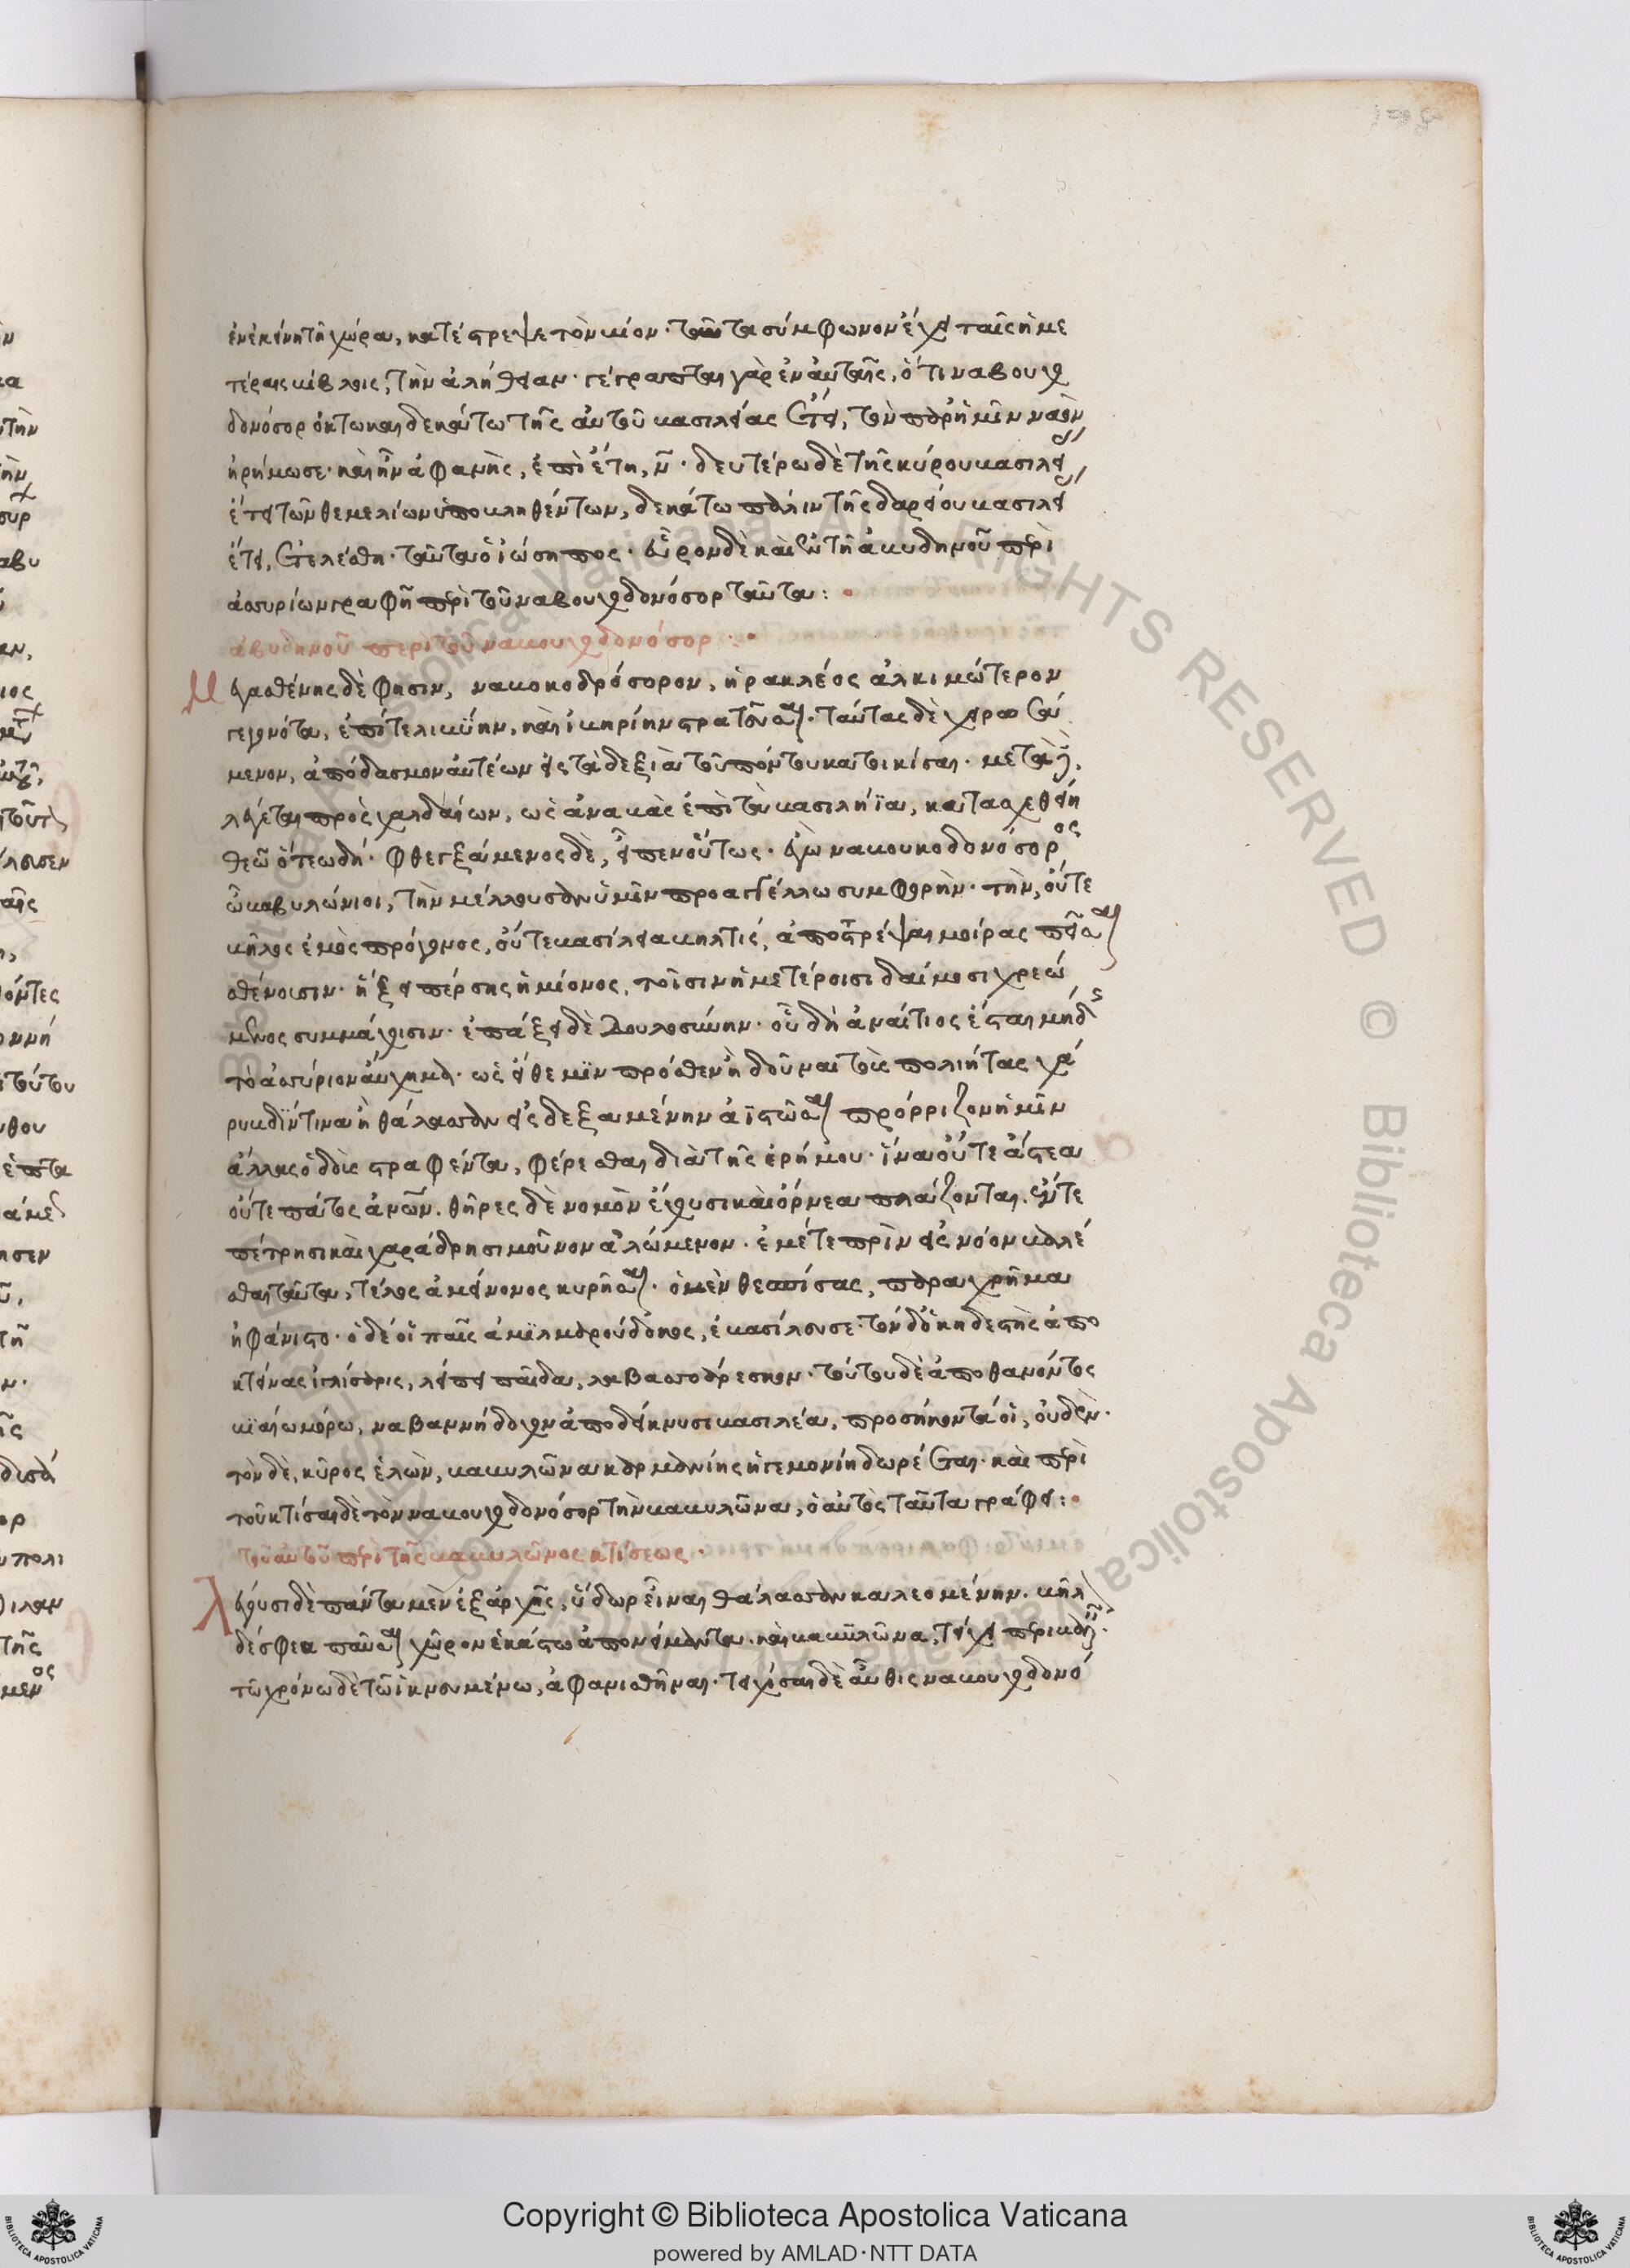 ἐν ἐκείνη τῇ χώρα, κατέστρεψε τὸν βίον· ταῦτα σύμφωνον ἔχει ταῖς ἡμε
τέραις βίβλοις, τὴν ἀλήθειαν· γέγραπται γὰρ ἐν αὐταῖς, ὅτι ναβουχο
δονόσορ ὀκτωκαιδεκάτω τῆς αὐτοῦ βασιλείας ἔτει, τὸν παρ' ἡμῖν ναὸν
ἠρήμωσε· καὶ ἦν ἀφανὴς, ἐπὶ ἔτη, ν· δευτέρω δὲ τῆς κύρου βασιλεί
ἔτει τῶν θεμελίων ὑποβληθέντων, δεκάτω πάλιν τῆς δαρείου βασιλεί
ἔτει, ἐτελέσθη· ταῦτα ὁ ἰώσηπος· εὗρον δὲ καὶ ἐν τῇ ἀβυδηνοῦ περὶ
ἀσσυρίων γραφῇ περὶ τοῦ ναβουχοδονόσορ ταῦτα:
ἀβυδηνοῦ περὶ τοῦ ναβουχοδονόσορ:
Μεγασθένης δέ φησιν, ναβοκοδρόσορον, ἡρακλέος ἀλκιμώτερον
γεγονότα, ἐπί τε λιβύην, καὶ ἰβηρίην στρατεῦσαι· ταύτας δὲ χειρωσά
μενον, ἀπόδασμον αὐτέων εἰς τὰ δεξιὰ τοῦ πόντου κατοικίσαι· μετὰ δὲ,
λέγεται πρὸς χαλδαίων, ὡς ἀναβὰς ἐπὶ τὰ βασιλήϊα, κατασχεθείη
θεῷ ὅτεω δή· φθεγξάμενος δὲ, εἶπεν οὕτως· ἐγὼ ναβουκοδονόσορος
ὦ βαβυλώνιοι, τὴν μέλλουσαν ὑμῖν προαγγέλλω συμφορήν· τὴν, οὔτε
βῆλος ἐμὸς πρόγονος, οὔτε βασίλεια βῆλτις, ἀποτρέψαι μοίρας πεῖσαι
σθένουσιν· ἥξει πέρσης ἡμίονος, τοῖσιν ἡμετέροισι δαίμοσι χρεώ
μενος συμμάχοισιν· ἐπάξει δὲ δουλοσύνην· οὗ δὴ ἀναίτιος ἔσται μήδης
τὸ ἀσσύριον αὔχημα· ὡς εἴθε μιν πρόσθεν ἢ δοῦναι τοὺς πολιήτας χά
ρυβδίν τινα ἢ θάλασσαν εἰσδεξαμένην ἀϊστῶσαι πρόρριζον ἢ μῖν
ἄλλας ὁδοὺς στραφέντα, φέρεσθαι διὰ τῆς ἐρήμου· ἵνα οὔτε ἄστεα
οὔτε πάτος ἀνῶν. θῆρες δὲ νομὸν ἔχουσι καὶ ὄρνεα πλάζονται. ἔν τε
πέτρησι καὶ χαράδρησι μοῦνον ἀλώμενον· ἐμέ τε πρὶν εἰς νόον βαλέ
σθαι ταῦτα, τέλεος ἀμείνονος κυρῆσαι· ὁ μὲν θεσπίσας, παραχρῆμα
ἠφάνιστο· ὁ δέ οἱ παῖς ἀμϊλμαρούδοκος, ἐβασίλευσε· τὸν δ' ὁ κηδεστὴς ἀπο
κτείνας ἰγλίσαρις, λείπει παῖδα, λαβασσοάρεσκον· τούτου δὲ ἀποθανόντος
βϊαίω μόρω, ναβαννήδοχον ἀποδείκνυσι βασιλέα, προσήκοντά οἱ, οὐδέν·
τὸν δὲ, κῦρος ἑλὼν, βαβυλῶνα καρμανίης ἡγεμονίη δωρέεται· καὶ περὶ
τοῦ κτίσαι δὲ τὸν ναβουχοδονόσορ τὴν βαβυλῶνα, ὁ αὐτὸς ταῦτα γράφει:
τοῦ αὐτοῦ περὶ τῆς βαβυλῶνος κτίσεως·
Λέγουσι δὲ πάντα μὲν ἐξ ἀρχῆς, ὕδωρ εἶναι θάλασσαν καλεομένην. βῆλ
δέ σφεα παῦσαι χῶρον ἑκάστω ἀπονείμαντα. καὶ βαβυλῶνα, τείχει περιβαλεῖν·
τῷ χρόνω δὲ τῷ ἱκνουμένω, ἀφανισθῆναι· τειχίσαι δὲ αὖθις ναβουχοδονό
Copyright © Biblioteca Apostolica Vaticana
powered by AMLAD·NTT DATA